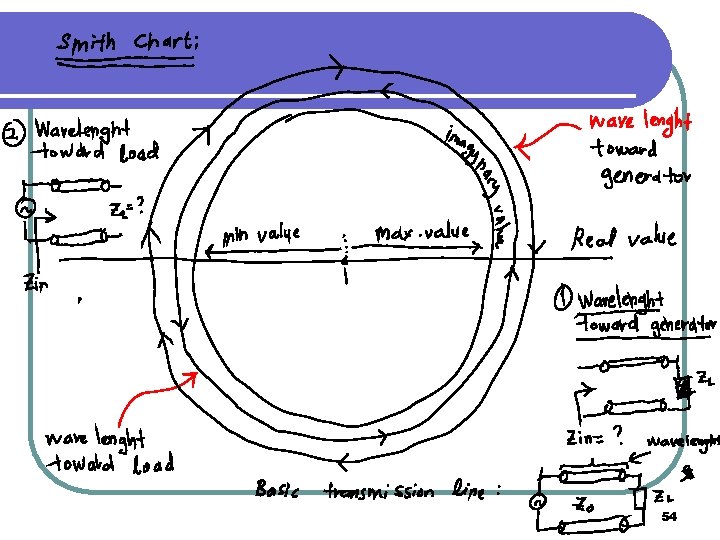 Smith Chart:
② Wavelenght
toward load
Z_L=?
Zin
min value
max. value
imagynary value
wave lenght
toward
generator
Real value
① Wavelenght
toward generator
Z_L
Zin= ?
wave lenght
toward load
Basic transmission line :
wavelenght
Z_0
Z_L
54